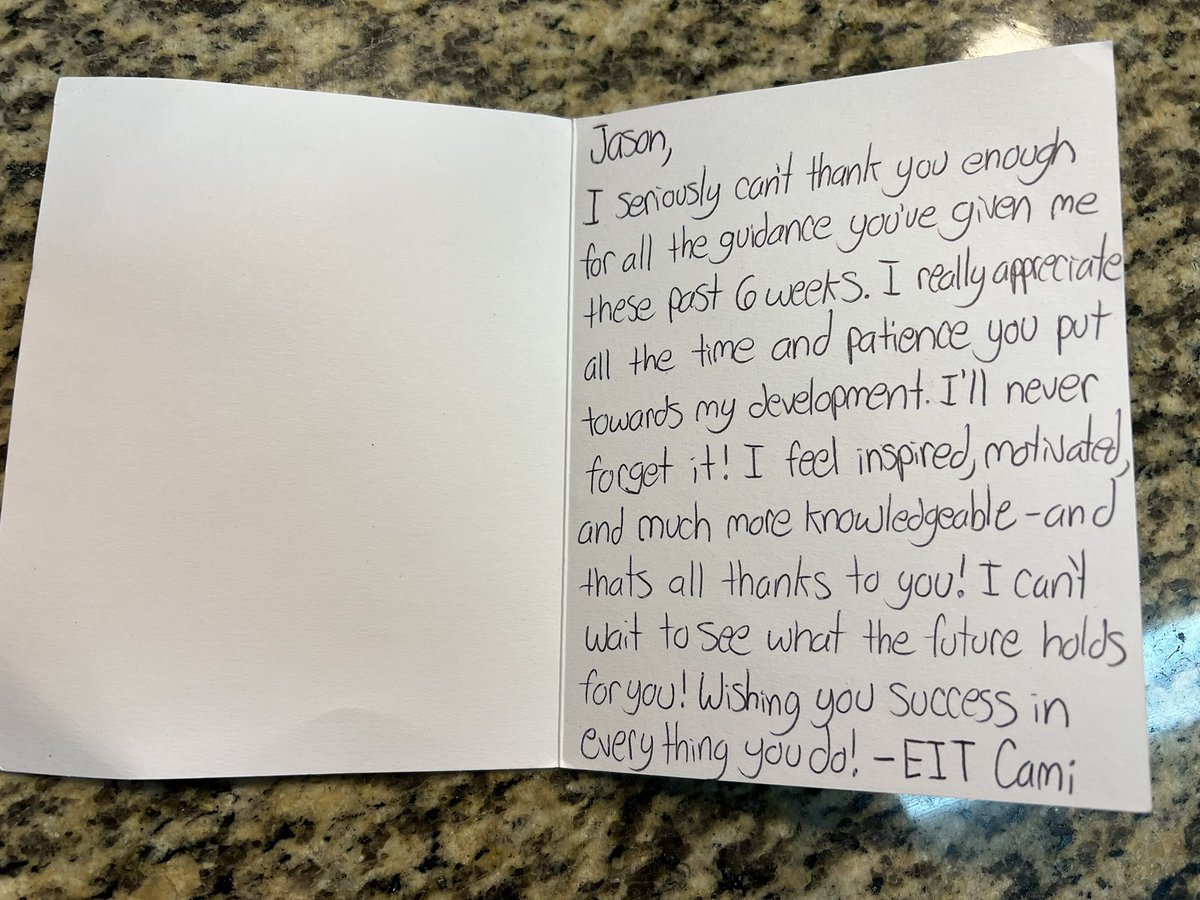 Jason,
I seriously can't thank you enough
for all the guidance you've given me
these past 6 weeks. I really appreciate
all the time and patience you put
towards my development. I'll never
forget it! I feel inspired, motivated,
and much more knowledgeable - and
thats all thanks to you! I can't
wait to see what the future holds
for you! Wishing you success in
everything you do! - EIT Cami